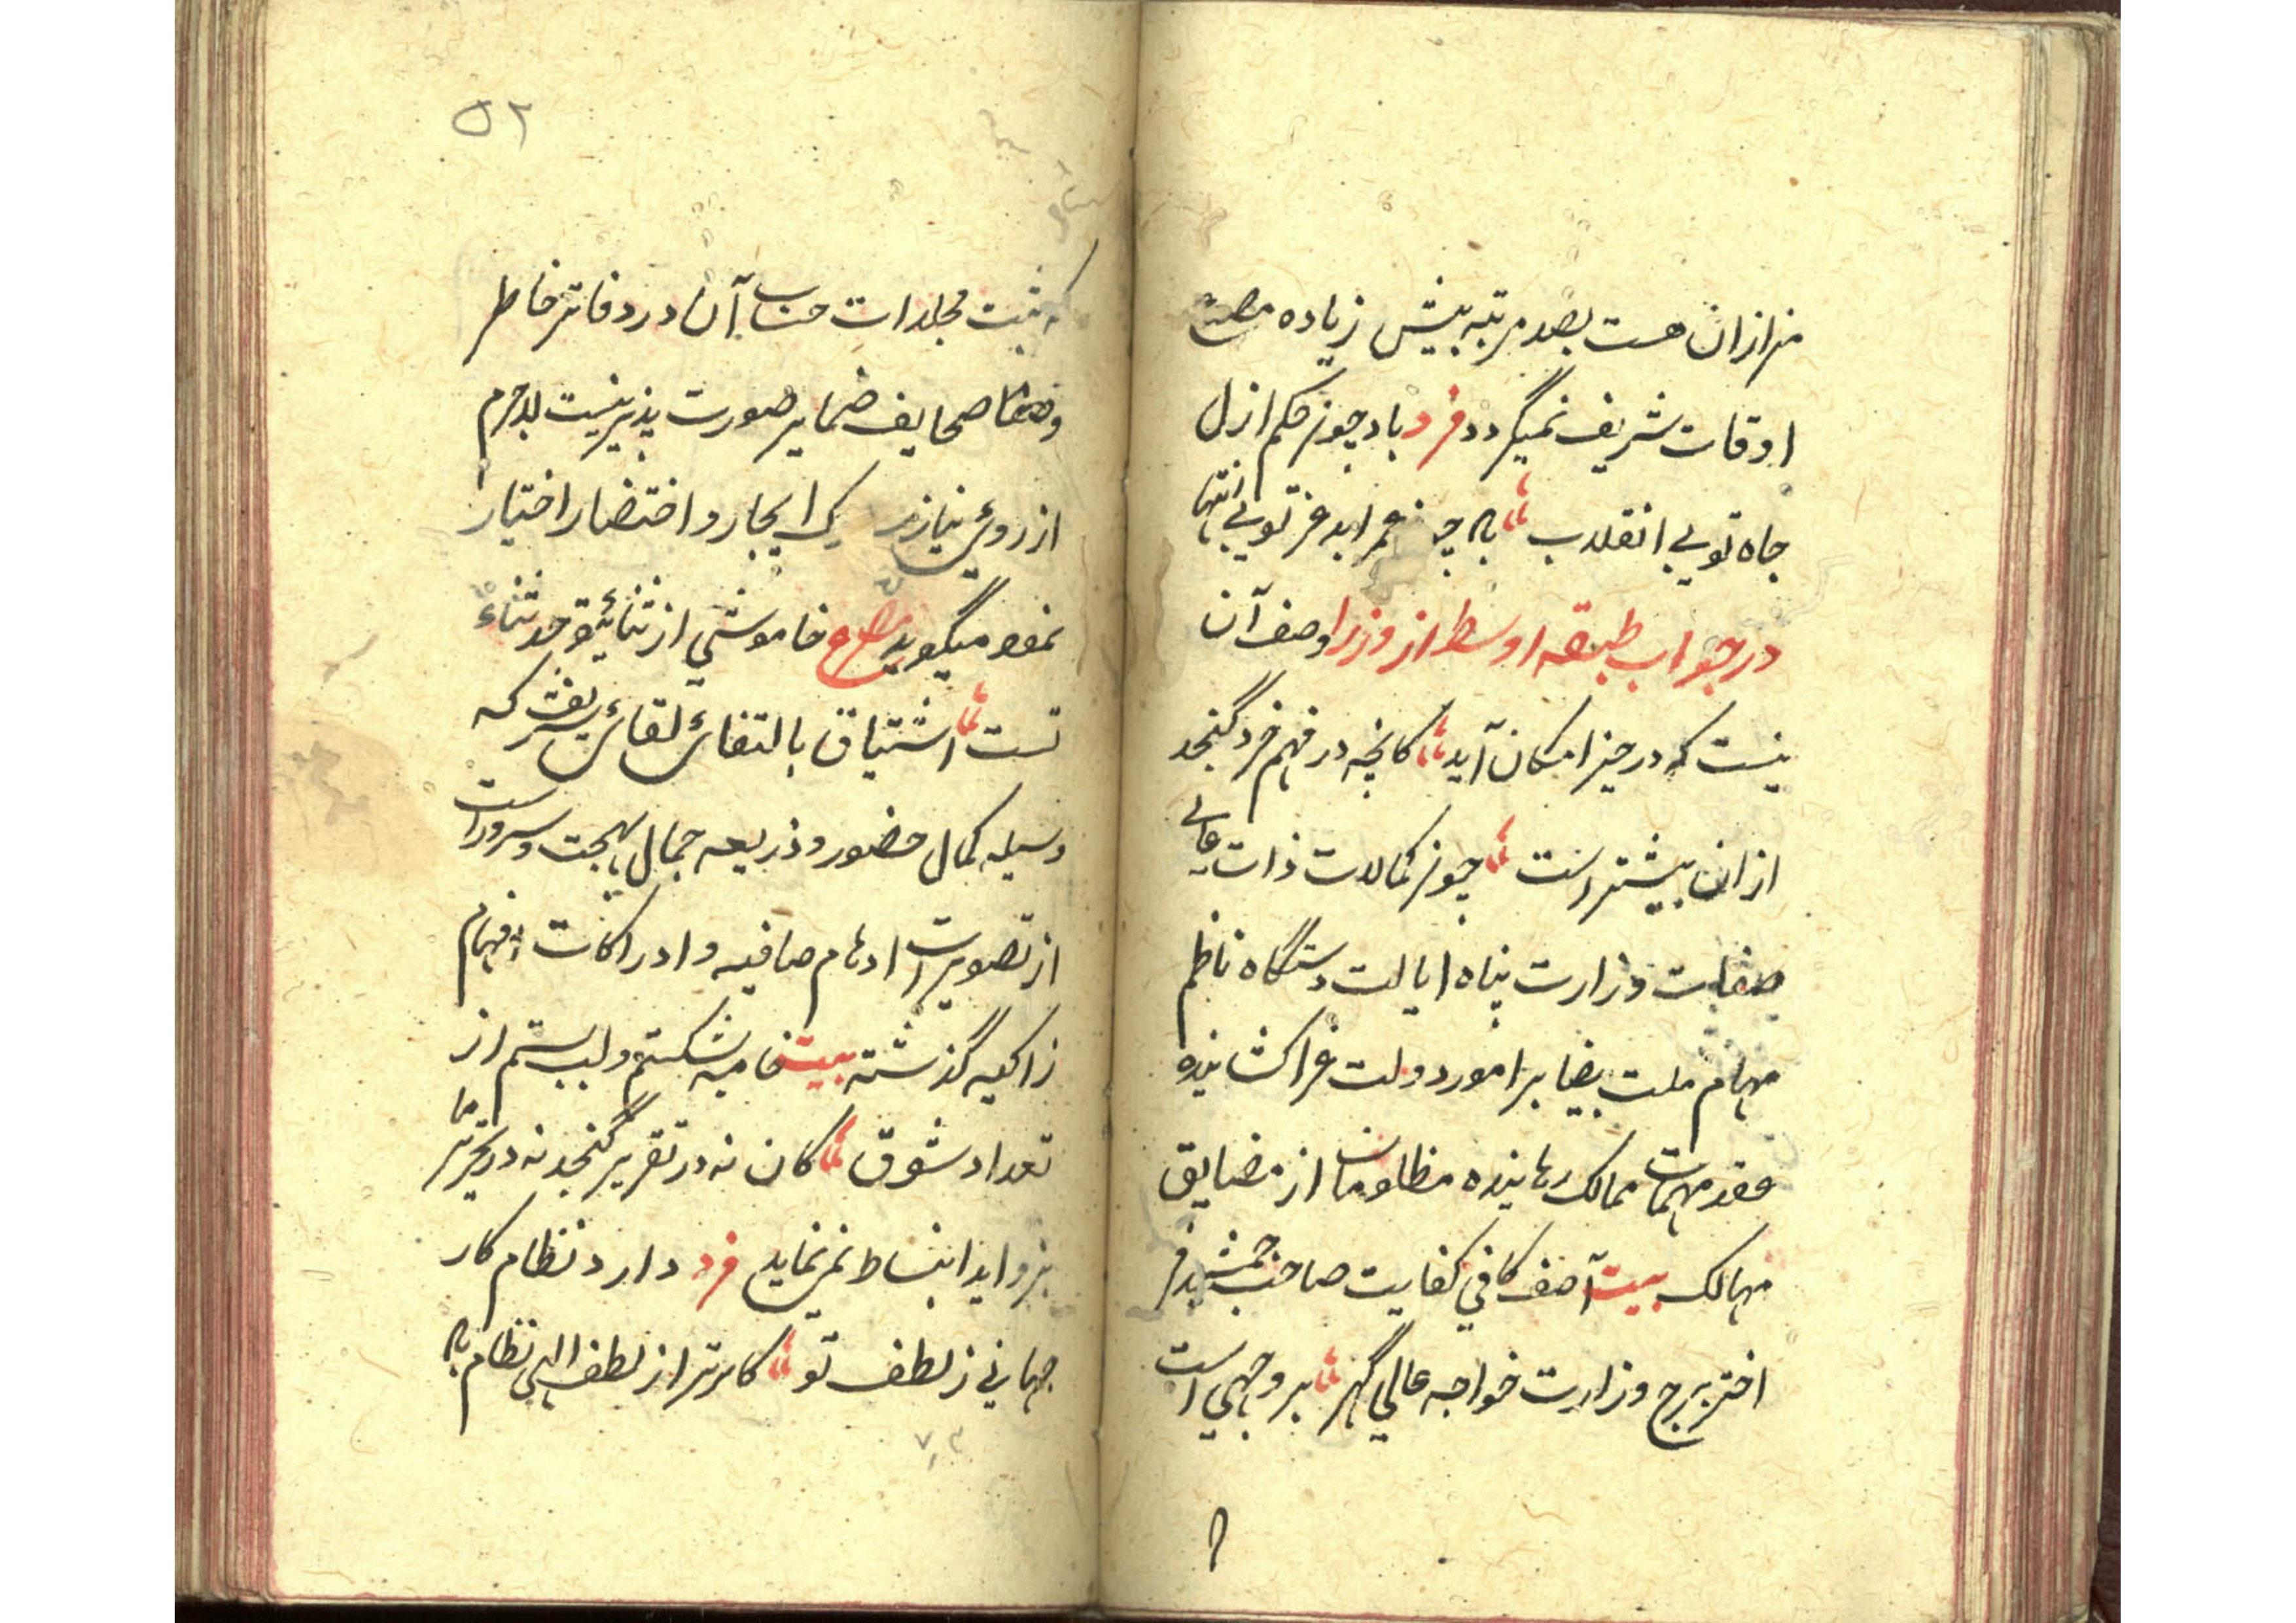 هزار ازان هست بصد مرتبه بیش زیاده مصدع
اوقات شریف نمیگردد فرد باد چون حکم ازل
جاه تو بی انقلاب باد چو عمر ابد عز تو بی انتها
در جواب طبقه اوسط از وزرا وصف آن
نیست که در حیز امکان آید کانچه در فهم خرد گنجد
ازان بیشتر است چون کمالات ذات عالی
صفات وزارت پناه ایالت دستگاه ناظم
مهام ملت بیضا بر امور دولت غرا کشاینده
عقد مهمات ممالک رهاینده مظلومان از مضایق
مهالک بیت آصف کافی کفایت صاحب جمشید فر
اختر برج وزارت خواجه عالی گهر بر وجهی است
۵۲
که ثبت مجلدات حساب آن در دفاتر خاطر
صحایف ضمایر صورت پذیر نیست لاجرم
از روی نیاز ایجاز و اختصار اختیار
نموده میگوید مصرع خاموشی از ثنای تو حد ثنای
تست اشتیاق بالتقای لقای شریف که
وسیله کمال حضور و ذریعه جمال بهجت و سرور است
از تصویرات اوهام صافیه و ادراکات افهام
زاکیه گذشته بیت خامه بشکستم و لب بستم از
تعداد شوق کان نه در تقریر گنجد نه در تحریر ما
بزواید انبساط نمی نماید فرد دارد نظام کار
جهانی ز لطف تو کارتر از لطف الهی نظام باد